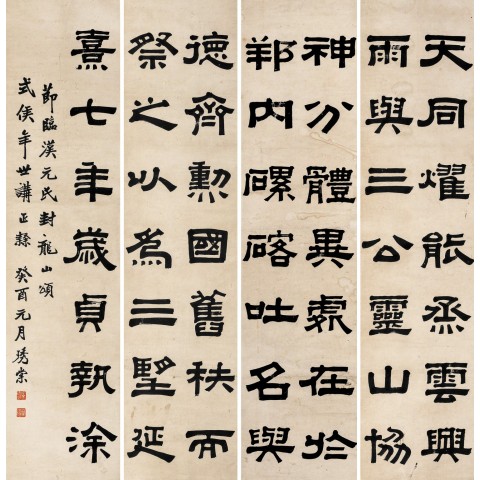 天同燿能烝雲興
雨與三公靈山協
神分體異處在於
邦内磥硌吐名與
德齊勳國舊秩而
祭之以爲三朢延
熹七年歲貞執涂
節臨漢元氏封龍山頌
式侯年世講正 癸酉元月